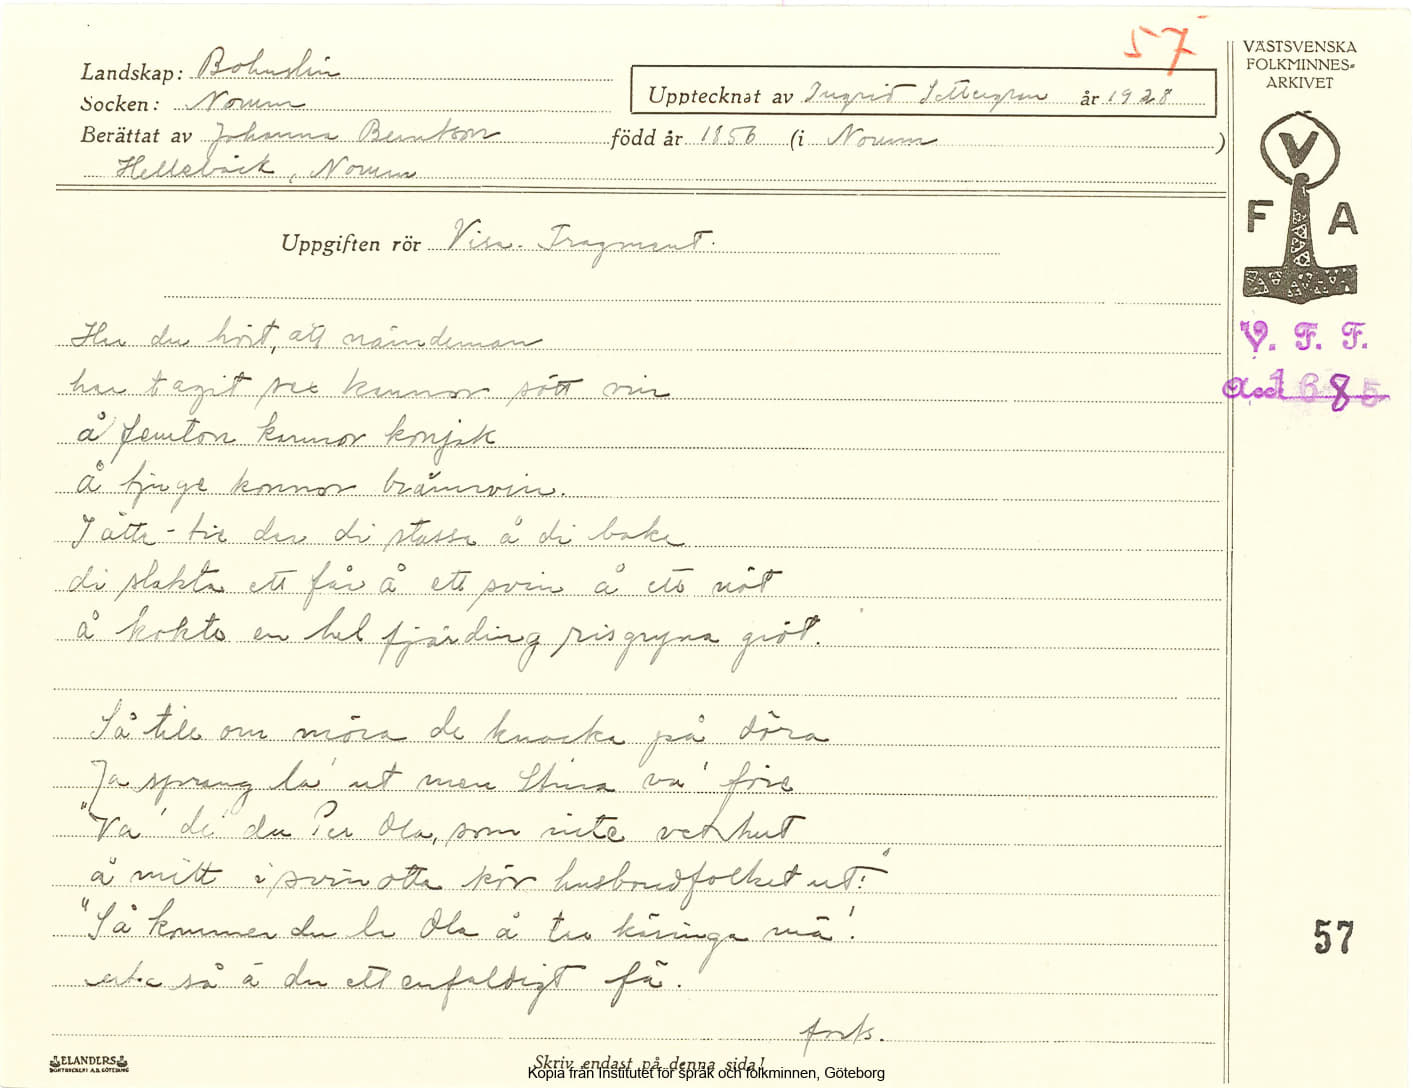 57
VÄSTSVENSKA
FOLKMINNES-
ARKIVET
Landskap: Bohuslän
Socken: Norum
Upptecknat av Ingrid Settergren år 1928
Berättat av Johanna Berntson född år 1856 (i Norum)
Hellebäck, Norum
V
F A
Uppgiften rör Visa. Fragment.
V. F. F.
Acc 1685
Har du hört, att nämndeman
har tagit sex kannor sött vin
å femton kannor konjak
å tjuge kannor brännvin.
I åtta-tie dar di stassa å di baka
di slakta ett får å ett svin å ett nöt
å kokte en hel fjärding risgryna gröt.
Så till om möra de knacka på döra
Ja sprang la' ut men Stina va' före
"Va' de' du Per Ola, som inte vet hut
å mitt i svinotta kör husbondfolket ut!"
"Så kommer du la Ola å tar käringa mä'!
så ä du ett enfaldigt fä.
57
forts.
ELANDERS
BOKTRYCKERI A.B. GÖTEBORG
Skriv endast på denna sida!
Kopia från Institutet för språk och folkminnen, Göteborg